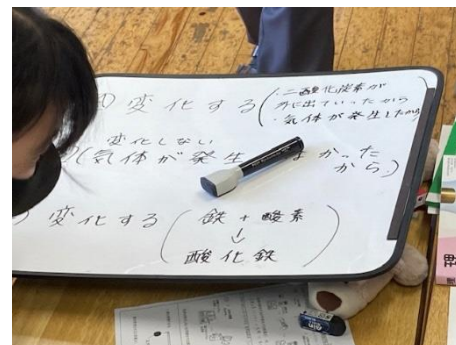 変化する(・二酸化炭素が
外に出ていったから
・気体が発生したから
変化しない
(気体が発生 かった
から)
変化する(鉄+酸素
↓
酸化鉄)
理